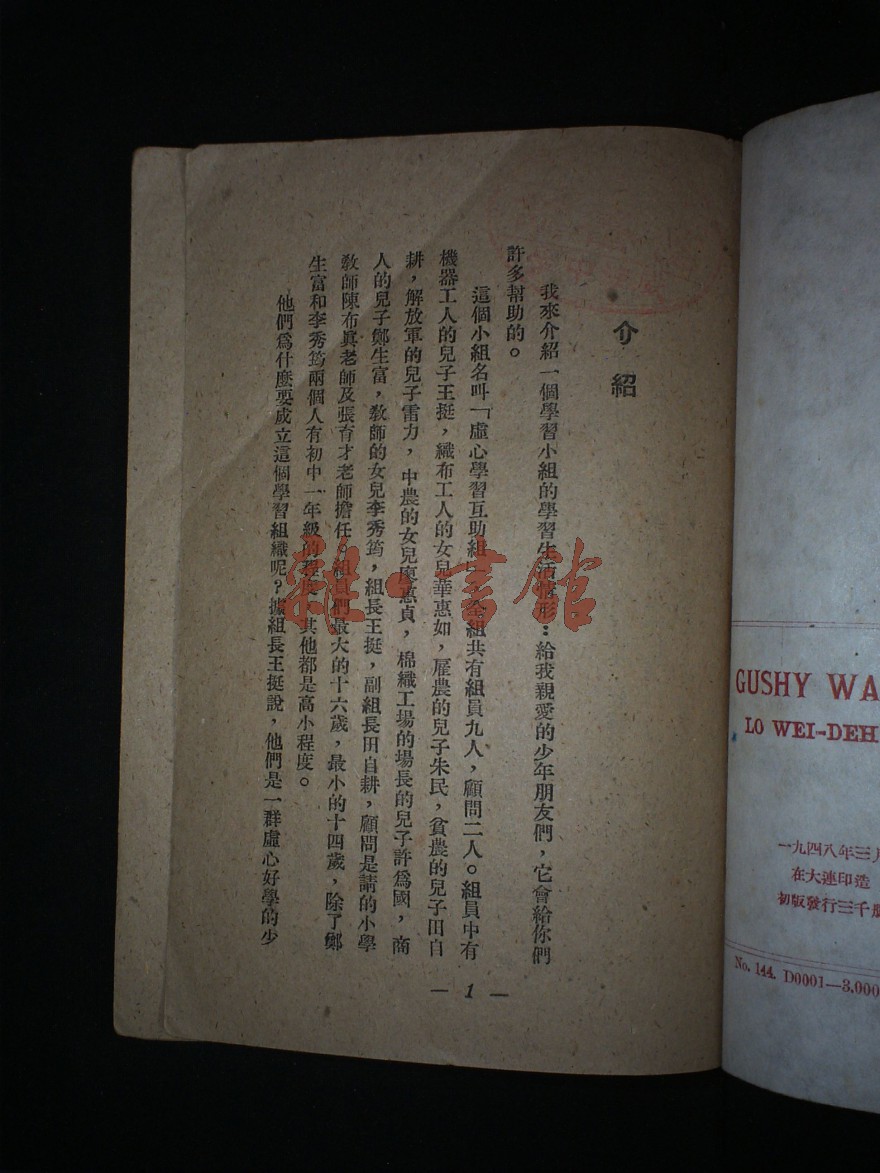 介紹
我來介紹一個學習小組的學習生活情形：給我親愛的少年朋友們，它會給你們
許多幫助的。
這個小組名叫「虛心學習互助組」，全組共有組員九人，顧問二人。組員中有
機器工人的兒子王挺，織布工人的女兒華惠如，雇農的兒子朱民，貧農的兒子田自
耕，解放軍的兒子雷力，中農的女兒廖惠貞，棉織工場的場長的兒子許爲國，商
人的兒子鄭生富，敎師的女兒李秀筠，組長王挺，副組長田自耕，顧問是請的小學
敎師陳布眞老師及張育才老師擔任。組員們最大的十六歲，最小的十四歲，除了鄭
生富和李秀筠兩個人有初中一年級的程度，其他都是高小程度。
他們爲什麼要成立這個學習組織呢？據組長王挺說，他們是一群虛心好學的少
— 1 —
雜·書館
GUSHY WA
LO WEI-DEH
一九四八年三月
在大連印造
初版發行三千册
No. 144. D0001—3.000